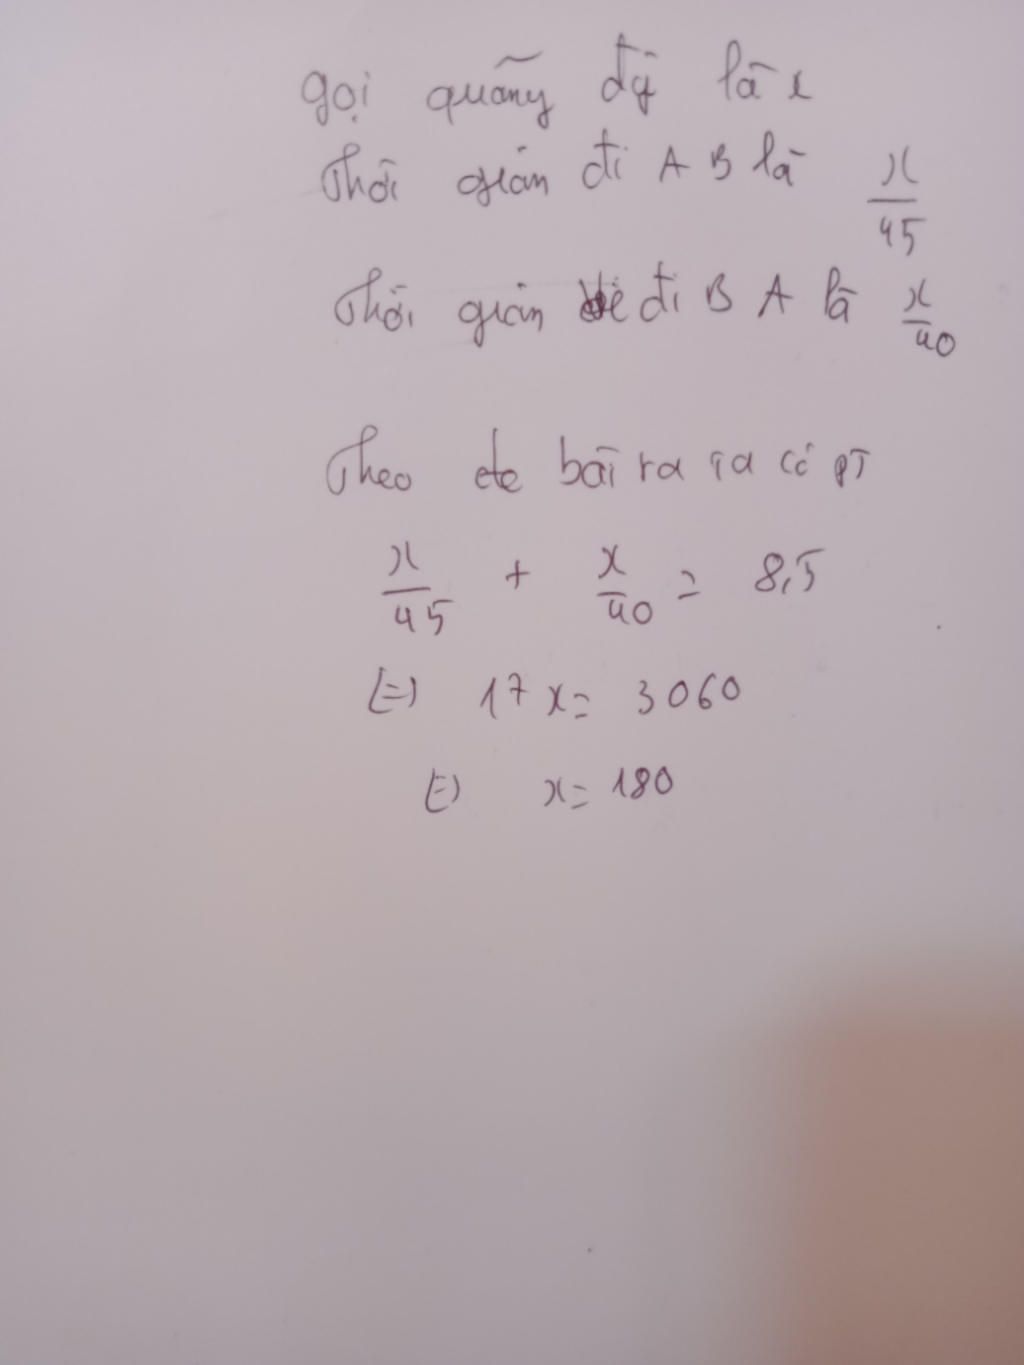 gọi quãng đg là x
Thời gian đi A B là x/45
Thời gian đi B A là x/40
Theo đề bài ra ta có PT
x/45 + x/40 = 8,5
(=) 17x = 3060
(=) x = 180